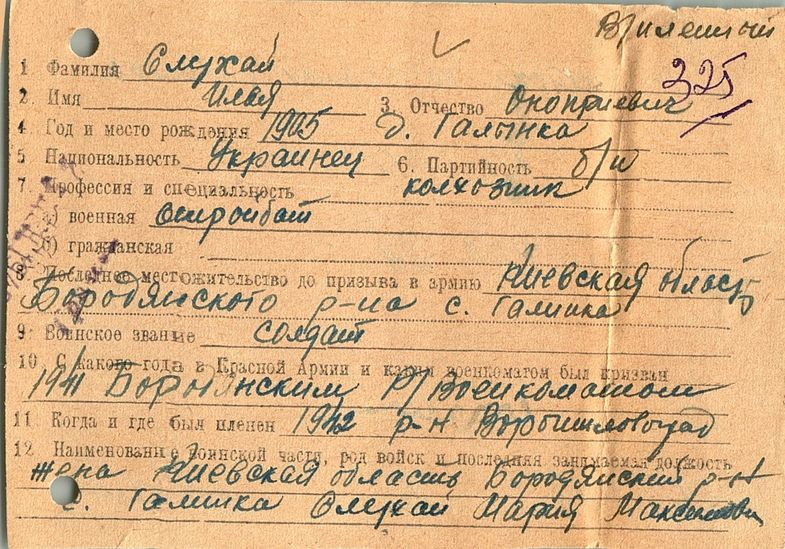 В/пленный
1 Фамилия Слухай
225
2. Имя Илья 3. Отчество Оноприевич
4 Год и место рождения 1905 д. Галынка
5 Национальность Украинец 6. Партийность б/п
7. Профессия и специальность колхозник
а) военная стройбат
б) гражданская
8 Последнее местожительство до призыва в армию Киевская область
Бородянского р-на с. Галинка
9 Воинское звание солдат
10 С какого года в Красной Армии и каким военкоматом был призван
1941 Бородянским Р/Военкоматом
11 Когда и где был пленен 1942 р-н Ворошиловград
12 Наименование воинской части, род войск и последняя занимаемая должность
жена Киевская область Бородянский р-н
с. Галинка Слухай Мария Максимовн